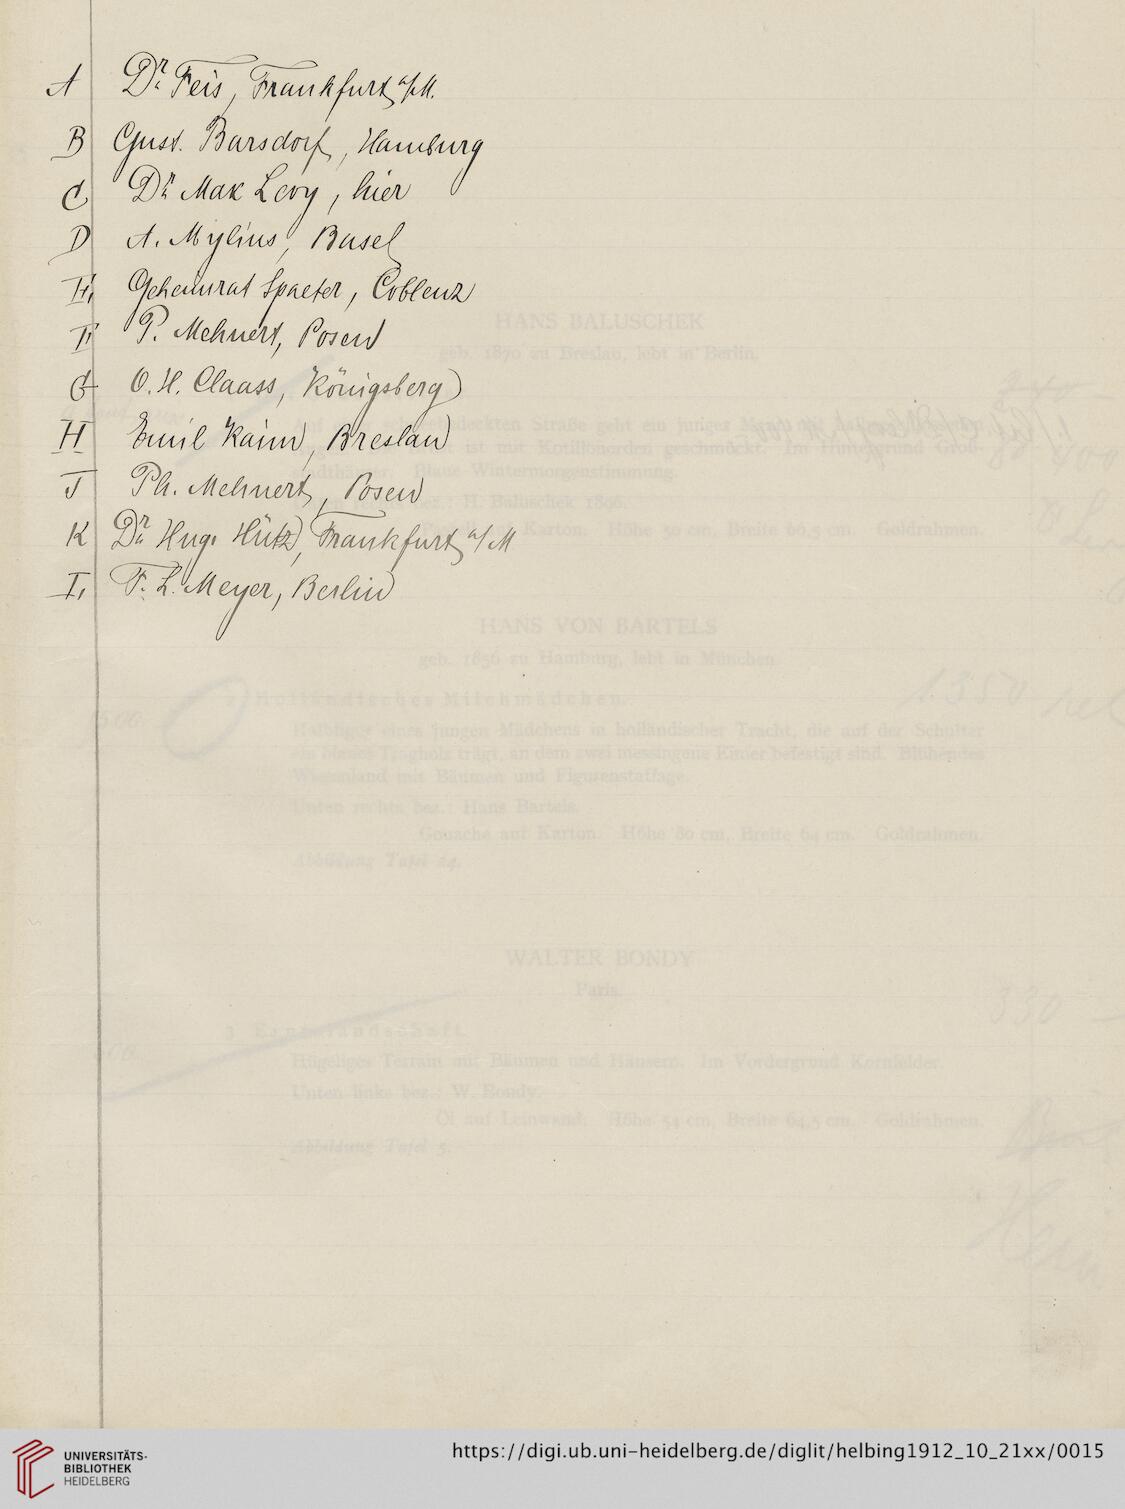 A Dr. Feis, Frankfurt a/M.
B Gust. Barsdorf, Hamburg
C Dr. Max Levy, hier
D A. Mylius, Basel
E, Geheimrat Spaeter, Coblenz
F P. Mehnert, Posen
G O. H. Claass, Königsberg
H Emil Kaim, Breslau
J Ph. Mehnert, Posen
K Dr. Hugo Frankfurt a/M
F. L. Meyer, Berlin
HANS BALUSCHEK
geb. 1870 zu Breslau, lebt in Berlin.
Straße geht ein junges
ist mit Kotillonorden geschmückt. Im Hintergrund Groß-
Blaue Wintermorgenstimmung.
bez.: H. Baluschek 1896.
Karton. Höhe 50 cm, Breite 66,5 cm. Goldrahmen.
HANS VON BARTELS
geb. 1856 zu Hamburg, lebt in München.
1350
2 Holländisches Milchmädchen.
eines jungen Mädchens in holländischer Tracht, die auf der Schulter
ein blaues Tragholz trägt, an dem zwei messingene Eimer befestigt sind. Blühendes
Wiesenland mit Bäumen und Figurenstaffage.
Unten rechts bez.: Hans Bartels.
Gouache auf Karton. Höhe 80 cm, Breite 64 cm. Goldrahmen.
Abbildung Tafel 24.
WALTER BONDY
Paris.
330
3
Hügeliges Terrain mit Bäumen und Häusern. Im Vordergrund Kornfelder.
Unten links bez.: W. Bondy.
Öl auf Leinwand. Höhe 54 cm, Breite 64,5 cm. Goldrahmen.
Abbildung Tafel 5.
UNIVERSITÄTS-
BIBLIOTHEK
HEIDELBERG
https://digi.ub.uni-heidelberg.de/diglit/helbing1912_10_21xx/0015